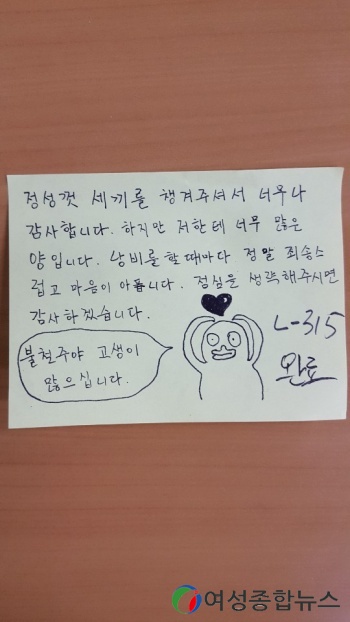 정성껏 세끼를 챙겨주셔서 너무나
감사합니다. 하지만 저한테 너무 많은
양입니다. 낭비를 할때마다 정말 죄송스
럽고 마음이 아픕니다. 점심을 생략해주시면
감사하겠습니다.
불철주야 고생이
많으십니다.
L-315
완료
여성종합뉴스